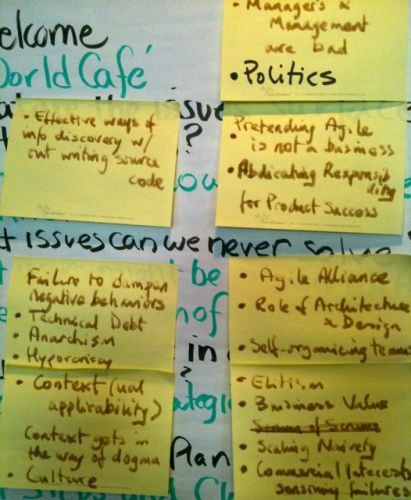 Managers &
Management
are bad
• Politics
elcome
World Café
issue
?
• Effective ways of
info discovery w/
out writing source
code
Pretending Agile
is not a business
• Abdicating Responsib
ility
for Product Success
t issues can we never solve
Failure to dampen
negative behaviors
• Technical Debt
• Anarchism
• Hypocrisy
• Context (ual
applicability)
Context gets in
the way of dogma
• Culture
be
of
in
?
Plan
• Agile Alliance
• Role of Architecture
& Design
• Self-organizing teams
• Elitism
• Business Value
Scrum of Scrums
• Scaling Naivety
• Commercial Interests